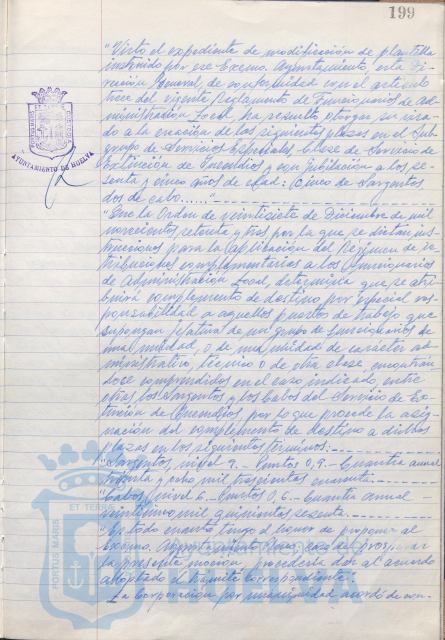 199
"Visto el expediente de modificación de plantilla
instruido por ese Excmo. Ayuntamiento, esta Di-
rección General, de conformidad con el artículo
trece del vigente Reglamento de Funcionarios de Ad-
ministración Local, ha resuelto otorgar su visado
a la creación de las siguientes plazas en el Sub-
grupo de Servicios Especiales. Clase de Servicio de
Extinción de Incendios y con jubilación a los se-
senta y cinco años de edad: Cinco de Sargentos
dos de cabo......"
"Que la Orden de veintisiete de Diciembre de mil
novecientos setenta y tres por la que se dictan ins-
trucciones para la aplicación del Régimen de re-
tribuciones complementarias a los funcionarios
de Administración Local, determina que se atri-
buirá complemento de destino por especial res-
ponsabilidad a aquellos puestos de trabajo que
supongan jefatura de un grupo de funcionarios de
una unidad, o de una unidad de carácter ad-
ministrativo, técnico o de otra clase, encontrán
dose comprendidos en el caso indicado, entre
otros los Sargentos y los Cabos del Servicio de Ex-
tinción de Incendios, por lo que procede la asig-
nación del complemento de destino a dichas
plazas en los siguientes términos:
"Sargentos, nivel 9.- Puntos 0,9.- Cuantía anual
treinta y ocho mil trescientas cuarenta.
"Cabos, nivel 6.- Puntos 0,6.- Cuantía anual -
veinticinco mil quinientas sesenta.
"Es todo cuanto tengo el honor de proponer al
Excmo. Ayuntamiento Pleno, caso de prosperar
la presente moción, procederá dar al acuerdo
adoptado el trámite correspondiente.
La Corporación por unanimidad acordó de con-
AYUNTAMIENTO DE HUELVA
PORTUS MARIS ET TERRAE
Ayuntamiento de
HUELVA